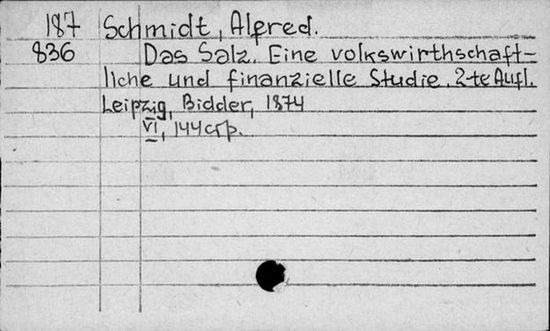 187 Schmidt, Alfred.
836 Das Salz. Eine volkswirthschaft-
liche und finanzielle Studie. 2-te Aufl.
Leipzig, Bidder, 1874
VI, 144 стр.